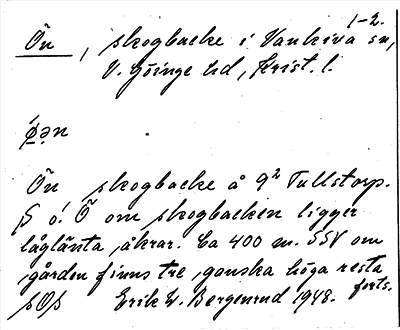 1-2.
Ön, skogbacke i Vankiva sn,
V. Göinge hd, Krist. l.
Ön skogbacke å 9² Tullstorp.
S o. Ö om skogbacken ligger
låglänta åkrar. Ca 400 m. SSV om
gården finns tre, ganska höga resta
forts.
Erik W. Bergenrud 1948.